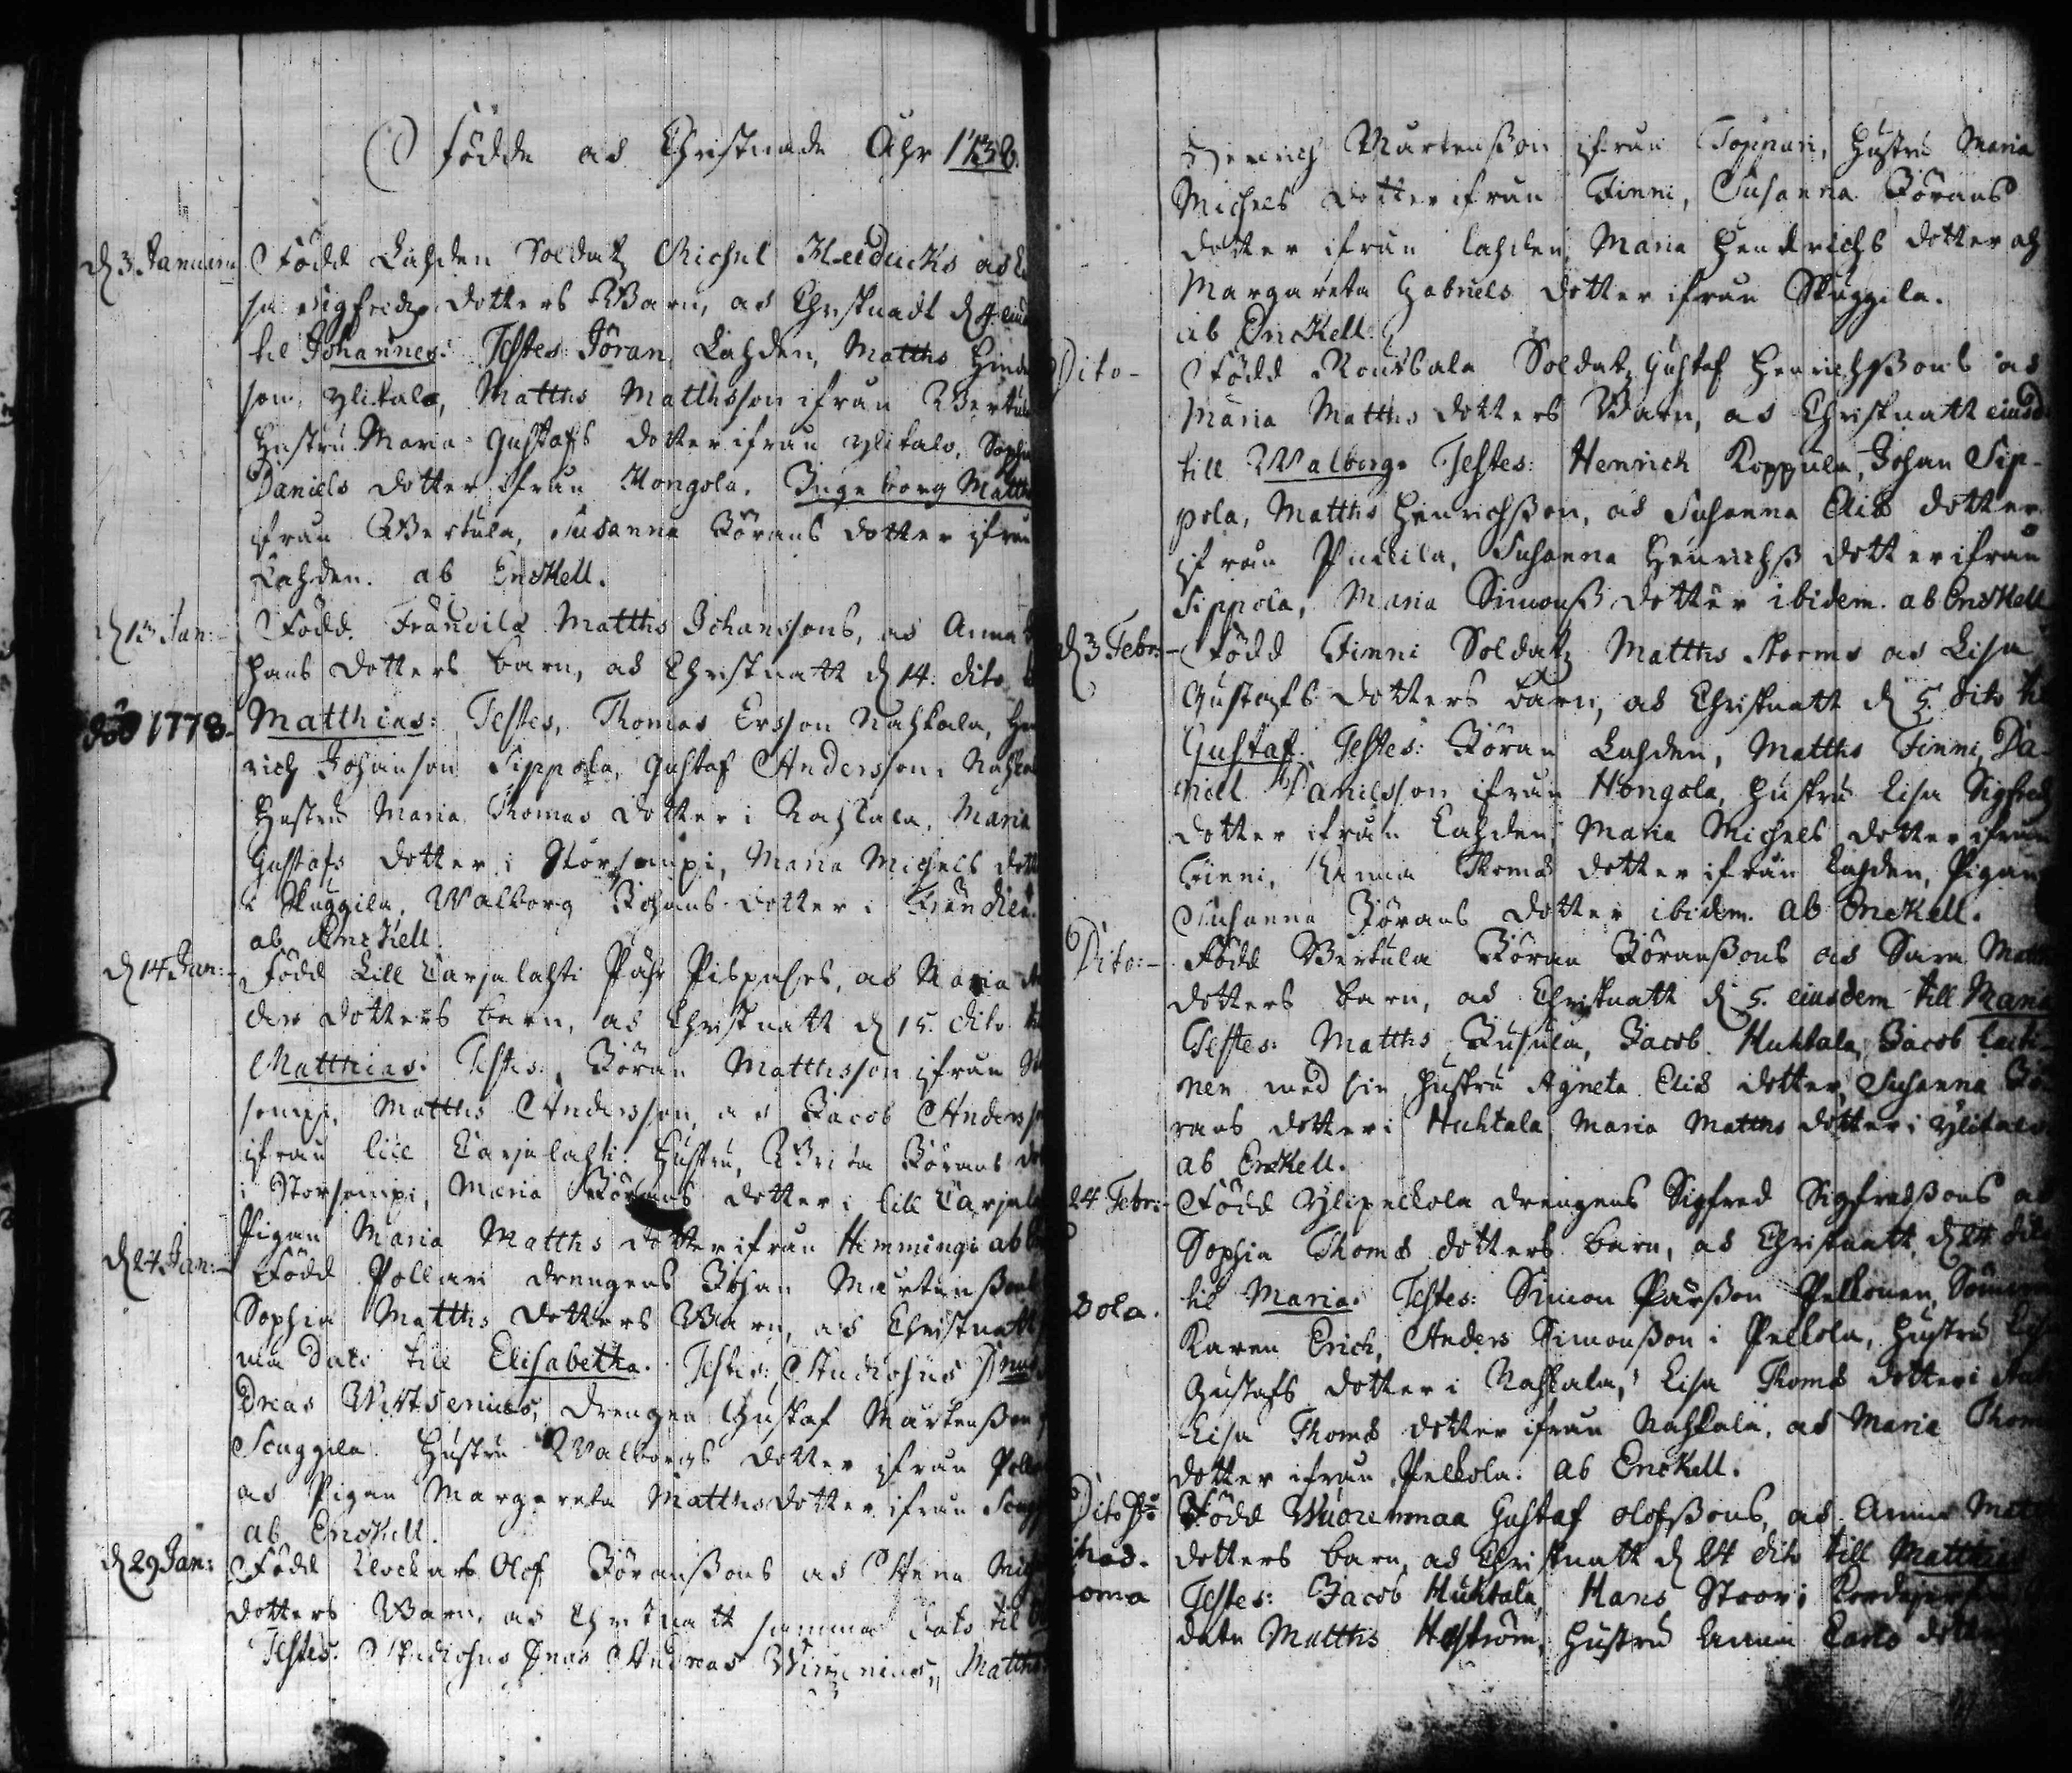 Födde och Christnade Åhr 1738.
d 3 Januarii Född Lahden Soldatz Michel Heiducks och Li
sa Sigfredz dotters Barn, och Christnadt d 4 eiusd
til Johannes. Testes: Jöran Lahden, Matths Hind
son, Ylitalo, Matths Matthsson ifrån Bertula
Hustru Maria Gustafs dotter ifrån Ylitalo, Sophia
Daniels dotter ifrån Hongola, Ingeborg Matths
ifrån Bertula, Susanna Jörans dotter ifrån
Lahden. ab Enckell.
d 13 Jan: Född Frändilä Matths Johanssons, och Anna
hans dotters barn, och Christnatt d 14. dito
död 1778. Matthias: Testes, Thomas Ersson Nahkala, Hen
rich Johanson Sippola, Gustaf Andersson, Nahkala
Hustru Maria Thomas dotter i Nahkala, Maria
Gustafs dotter i Storsompi, Maria Michels dott
i Skuggila, Walborg Johans dotter i Frändilä
ab Enckell.
d 14 Jan: Född Lill Carjalahti Påhl Pispases, och Maria An
ders dotters barn, och Christnatt d 15. dito til
Matthias. Testes: Jöran Matthsson ifrån Stor
sompi, Matths Andersson, och Jacob Anderss
ifrån lill Carjalahti. Hustru, Brita Jörans dot
i Storsompi, Maria Jörans dotter i lill Carjala
Pigan Maria Matths dotter ifrån Hemmingi ab
d 24 Jan: Född Pollari drengens Johan Mårtenssons
Sophia Matths dotters Barn, och Christnatt
ma dato till Elisabetha. Testes: Studiosus An
dreas Wirtzenius, drengen Gustaf Mårtensson
Scuggila. Hustru Walborgs dotter ifrån Polla
och Pigan Margareta Matthsdotter ifrån Scugg
ab Enckell.
d 29 Jan: Född Klockars Olof Jöranssons och Stena Mich
dotters Barn, och Christnatt samma dato til
Testes. Studiosus Andreas Wirzenius, Matths
Henrich Mårtensson ifrån Toppari, Hustru Maria
Michels dotter ifrån Finni, Susanna Jörans
dotter ifrån Lahden, Maria Hendrichs dotter och
Margareta Gabriels dotter ifrån Skuggila.
ab Enckell.
Dito - Född Soldatz Gustaf Henrichssons och
Maria Matths dotters Barn, och Christnatt eiusd
till Walborg. Testes: Henrich Koppula, Johan Sip-
pola, Matths Henrichsson, och Susanna Elis dotter
ifrån, Susanna Henrichs dotter ifrån
Sippola, Maria Simons dotter ibidem. ab Enckell
d 3 Febr: - Född Finni Soldatz Matths Storms och Lisa
Gustafs dotters barn, och Christnatt d 5. dito til
Gustaf. Testes: Jöran Lahden, Matths Finni, Da-
niel Danielsson ifrån Hongola, Hustru Lisa Sigfreds
dotter ifrån Lahden, Maria Michels dotter ifrån
Finni, Anna Thomas dotter ifrån Lahden, Pigan
Susanna Jörans dotter ibidem. ab Enckell.
Dito: - Född Bertula Jöran Jöranssons och Sara Matths
dotters barn, och Christnatt d 5. eiusdem till Maria
Testes: Matths Jusula, Jacob Huhtala, Jacob Laiti-
nen med sin Hustru Agneta Elis dotter, Susanna Jö-
rans dotter i Huhtala, Maria Matths dotter i Ylitalo.
ab Enckell.
24 Febr: - Född Ylipelkola drengens Sigfred Sigfredssons och
Sophia Thoms dotters barn, och Christnatt, d 24 dito
til Maria. Testes: Simon Pärsson Pelkonen,
Karen Erich, Anders Simonsson i Pelkola, Hustru Lisa
Gustafs dotter i Nahkala, Lisa Thoms dotter i
Lisa Thoms dotter ifrån Nahkala, och Maria Thom
dotter ifrån Pelkola. ab Enckell.
Dito Född Wuorenmaa Gustaf Olofssons, och Anna Matt
dotters barn, och Christnatt d 24 dito till Matthias
Testes: Jacob Huhtala, Hans Stoor i
date Matths Hagström, Hustru Anna Carls dotter